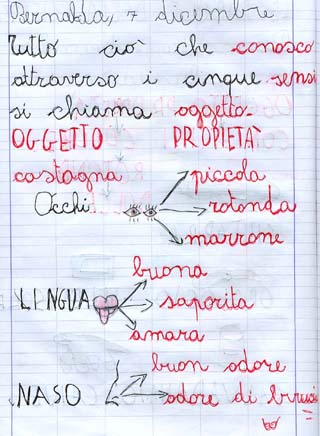 Bernalda, 7 dicembre
Tutto ciò che conosco
attraverso i cinque sensi
si chiama oggetto.
OGGETTO PROPIETÀ
castagna
Occhi piccola
rotonda
marrone
LINGUA buona
saporita
amara
NASO buon odore
odore di